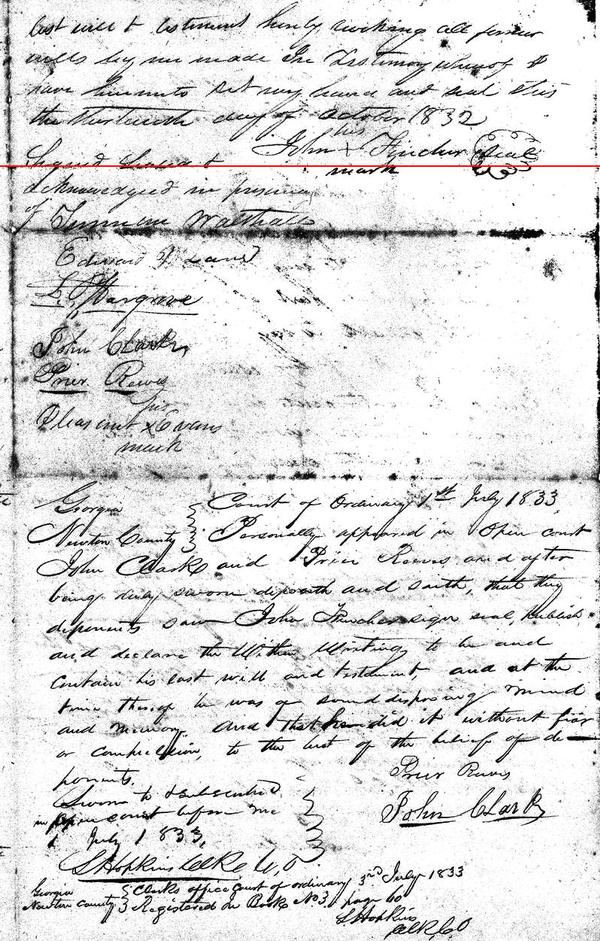 last will & testiment hereby revoking all former
wills by me made In Testimony whereof I
have hereunto set my hand and seal this
the thirteenth day of October 1832
his
John x Fincher Seal
mark
Signed Sealed &
acknowledged in presence
of Turman Walthall
Edward
L P Hargrave
John Clark
Prier Reves
his
Pleasant x Evans
mark
Georgia Court of Ordinary 1st July 1833
Newton County Personally appeared in Open court
John Clarke and Prier Reeves and after
being duly sworn deposeth and saith, that they
deponents saw John Fincher sign seal, publish
and declare the within Writings to be and
contain his last will and testiment, and at the
time thereof he was of sound disposing mind
and memory. And that he did it without fear
or compulsion, to the best of the belief of de
ponents.
Prier Reves
Sworn to & subscribed
in open court before me John Clark
1 July 1833,
S Hopkins Clk C, O
Georgia Clarks office Court of ordinary 3rd July 1833
Newton County Registered in Book No 3. page 60
S Hopkins
Clk C O